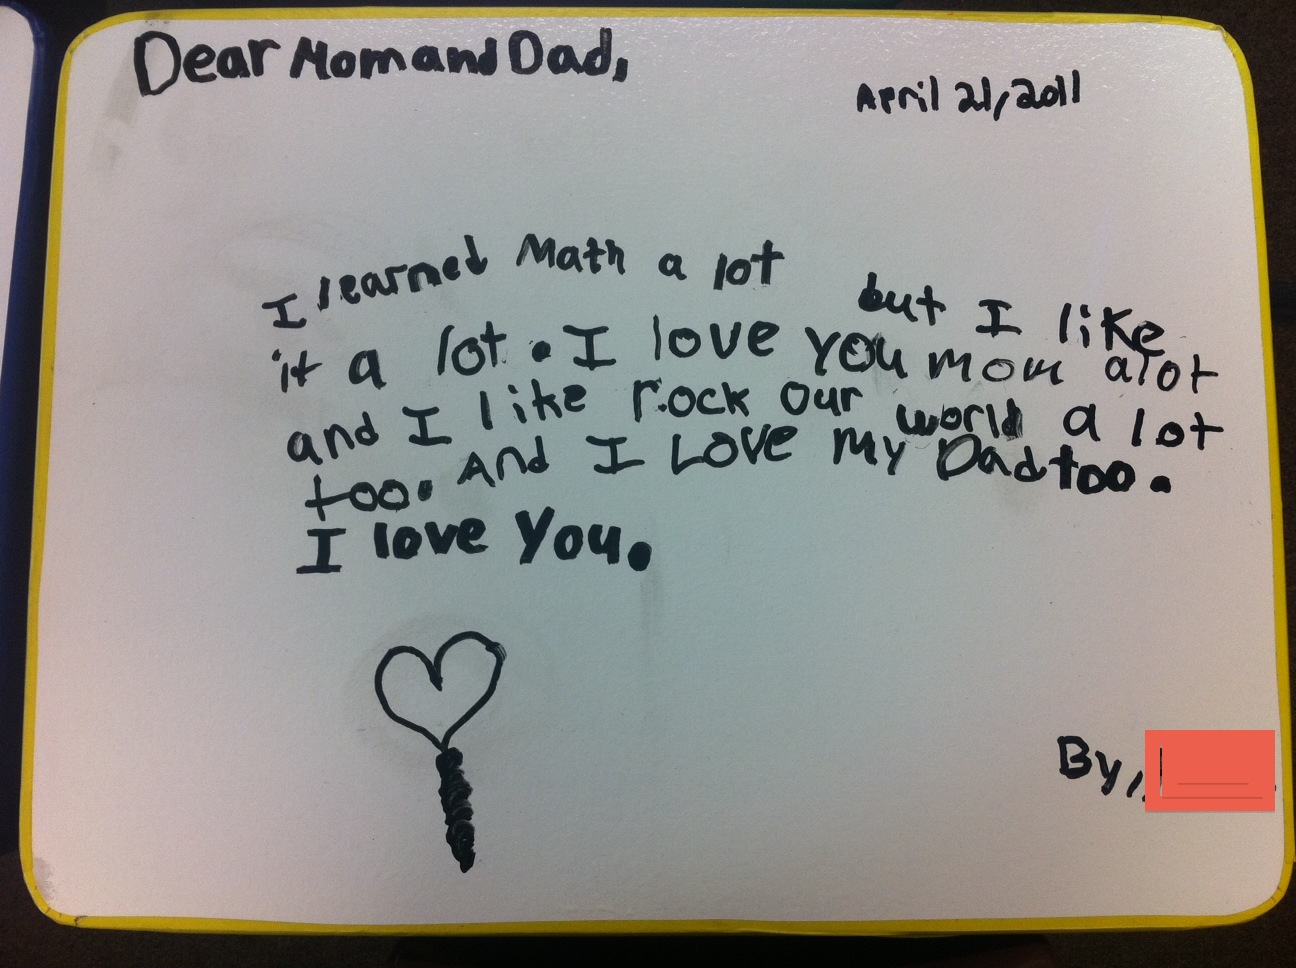 Dear Mom and Dad,
April 21, 2011
I learned Math a lot but I like
it a lot. I love you mom alot
and I like rock our world a lot
too. And I Love my Dad too.
I love you.
By,